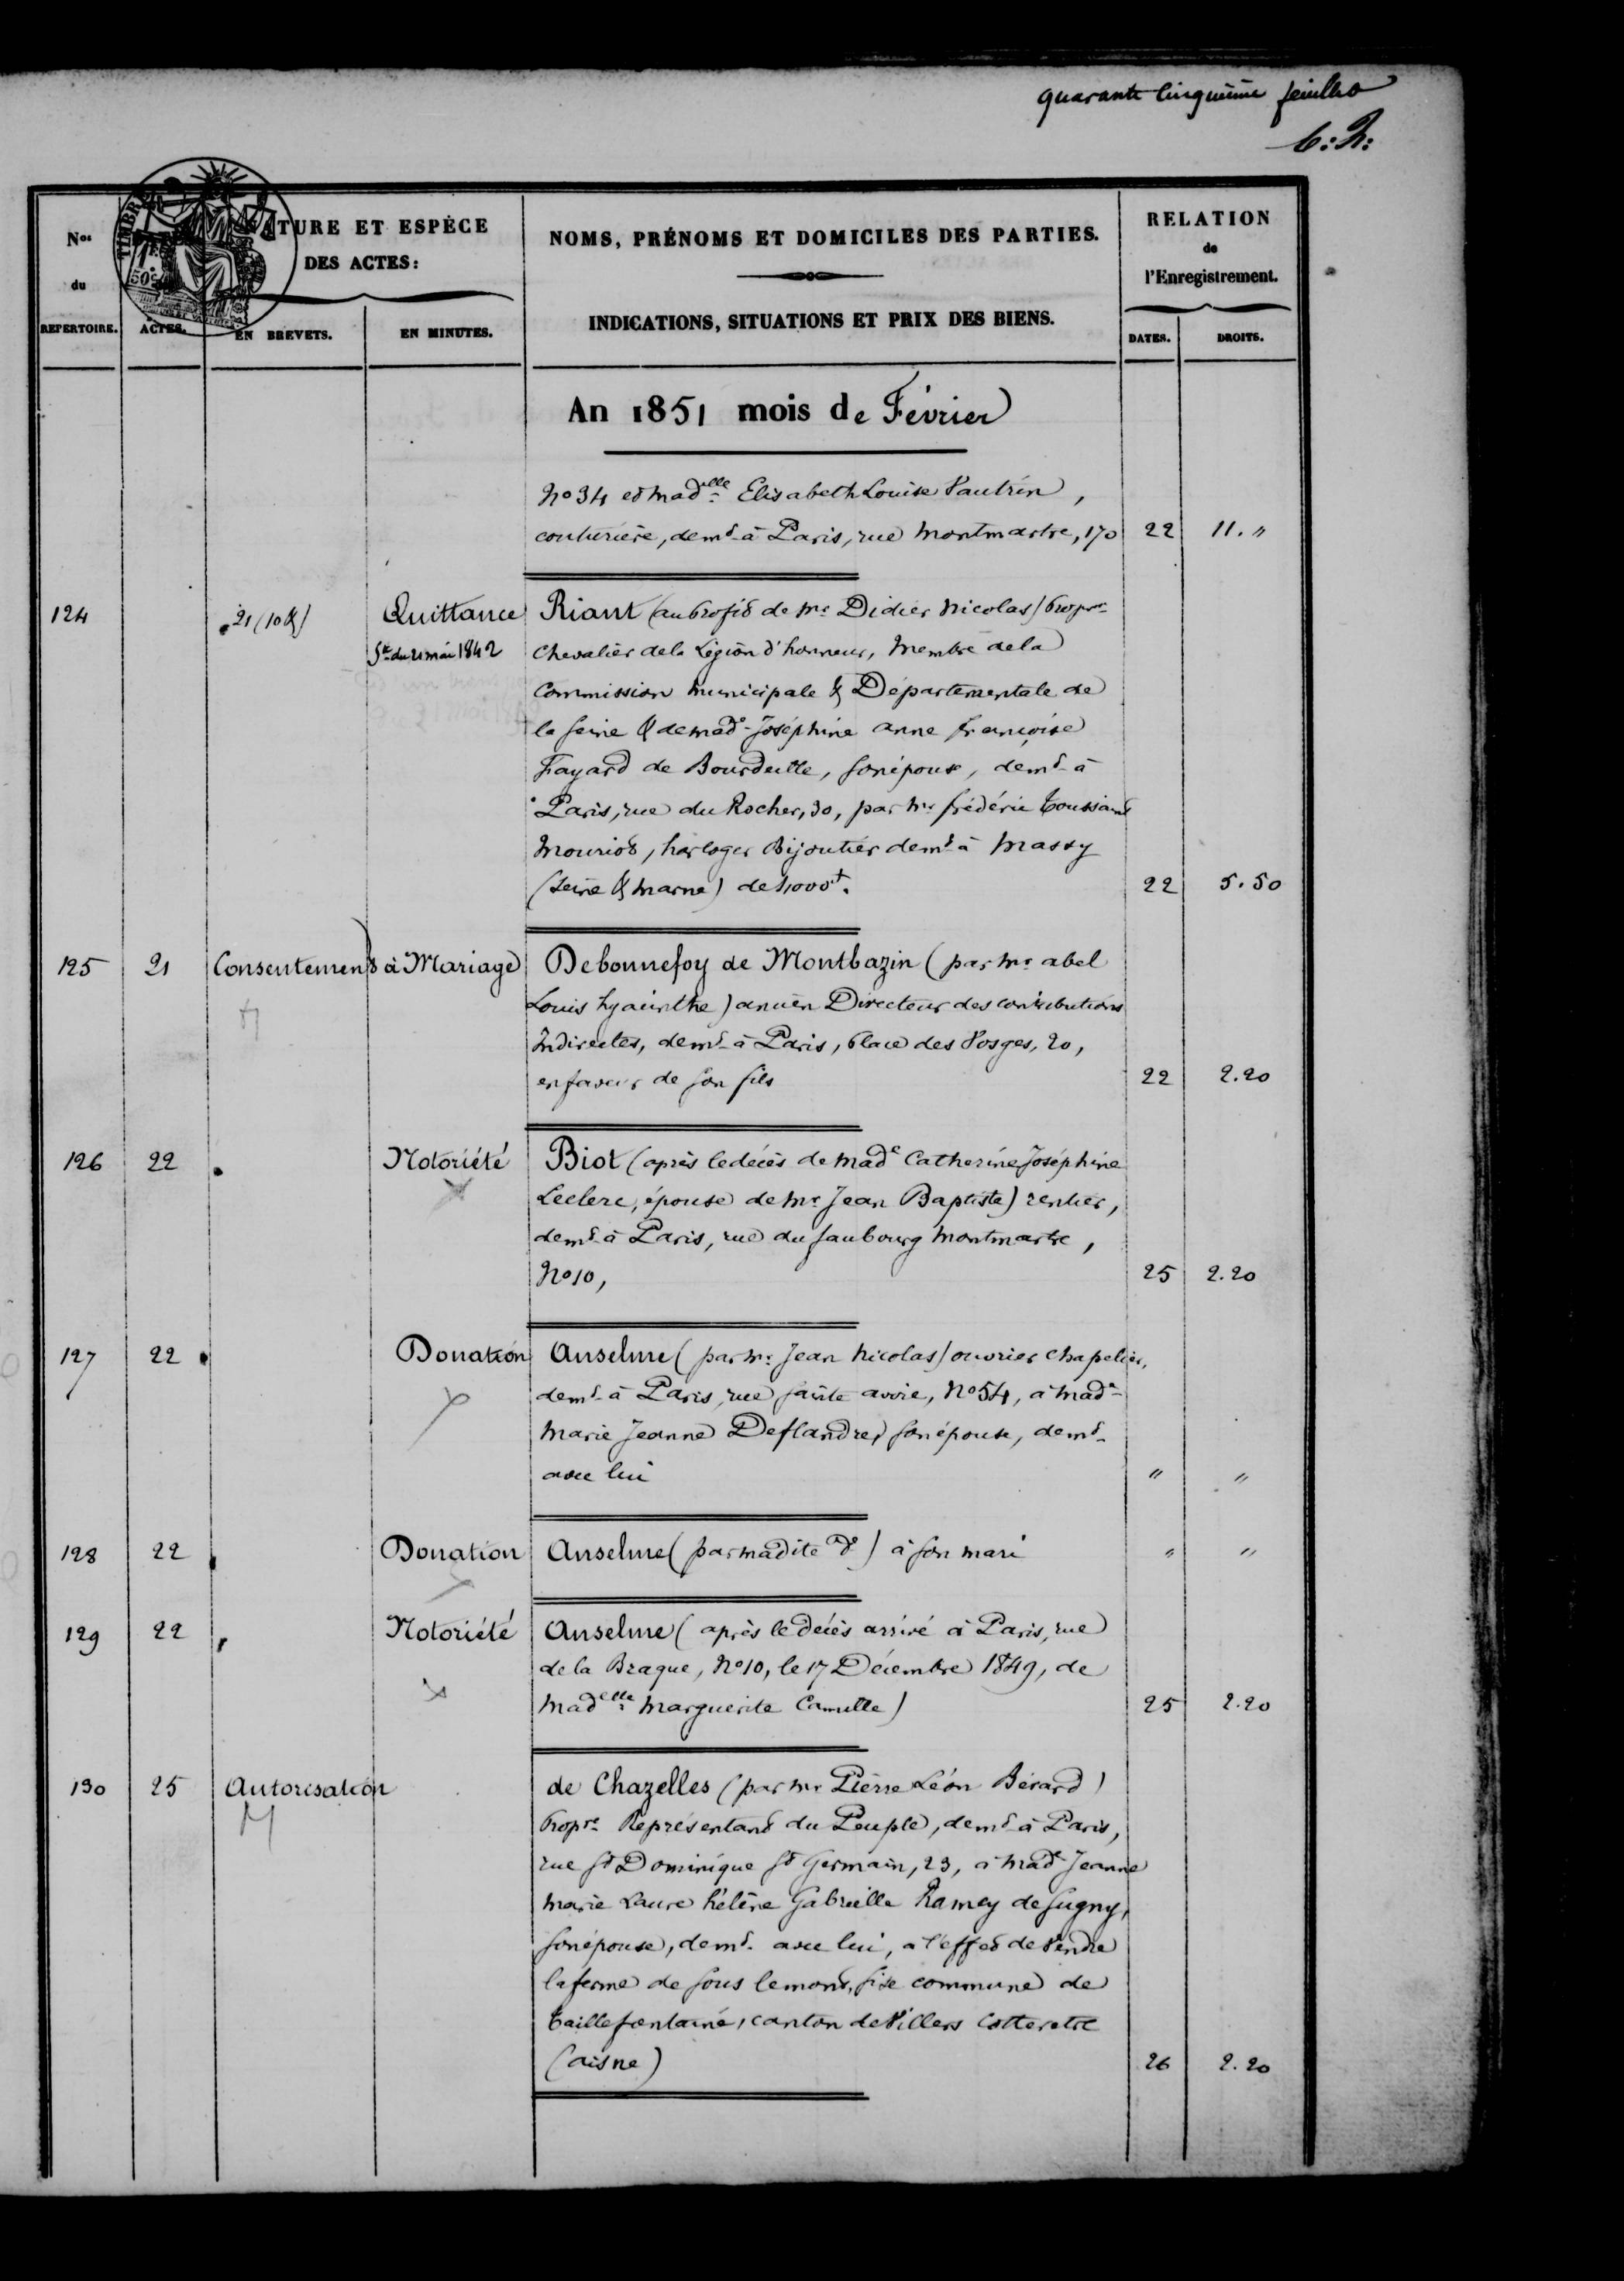 quarante cinquième feuillet
Nos
du
REPERTOIRE.
ACTES.
NATURE ET ESPÈCE
DES ACTES:
EN BREVETS.
EN MINUTES.
NOMS, PRÉNOMS ET DOMICILES DES PARTIES.
INDICATIONS, SITUATIONS ET PRIX DES BIENS.
RELATION
de
l'Enregistrement.
DATES.
DROITS.
TIMBRE
50c
An 1851 mois de Février
No 34 et Madelle Elisabeth Louise Vautrin,
couturière, demt à Paris, rue Montmartre, 170 22 11. "
124 21 (10 &) Quittance Riant (au profit de Mr Didier Nicolas) propre
Ste du 21 mai 1842 Chevalier de la Légion d'honneur, Membre de la
Commission Municipale & Départementale de
la Seine & de Made Joséphine Anne Françoise
Fayard de Bourdeille, son épouse, demt à
Paris, rue du Rocher, 30, par Mr frédéric Toussaint
Mouriot, horloger Bijoutier demt à Massy
(Seine & Marne) de 1,000f. 22 5.50
125 21 Consentement à Mariage Debonnefoy de Montbazin (par Mr abel
Louis hyacinthe) ancien Directeur des contributions
Indirectes, demt à Paris, place des Vosges, 20,
en faveur de son fils 22 2.20
126 22 Notoriété Biot (après le décès de Made Catherine Joséphine
Leclerc, épouse de Mr Jean Baptiste) rentier,
demt à Paris, rue du faubourg Montmartre,
No 10, 25 2.20
127 22 Donation Anselme (par Mr Jean Nicolas) ouvrier chapelier,
demt à Paris, rue Sainte avoie, No 54, à Made
Marie Jeanne Deflandre, son épouse, demt
avec lui " "
128 22 Donation Anselme (par madite de) à son mari " "
129 22 Notoriété Anselme (après le décès arrivé à Paris, rue
de la Braque, No 10, le 17 Décembre 1849, de
Madelle Marguerite Camille) 25 2.20
130 25 Autorisation de Chazelles (par Mr Pierre Léon Bérard)
propre Représentant du Peuple, demt à Paris,
rue St Dominique St Germain, 23, à Made Jeanne
Marie Laure hélène Gabrielle Ramey de Sugny,
son épouse, demt avec lui, à l'effet de Vendre
la ferme de sous le mont, sise commune de
Taillefontaine, canton de Villers Cotterets
(aisne) 26 2.20